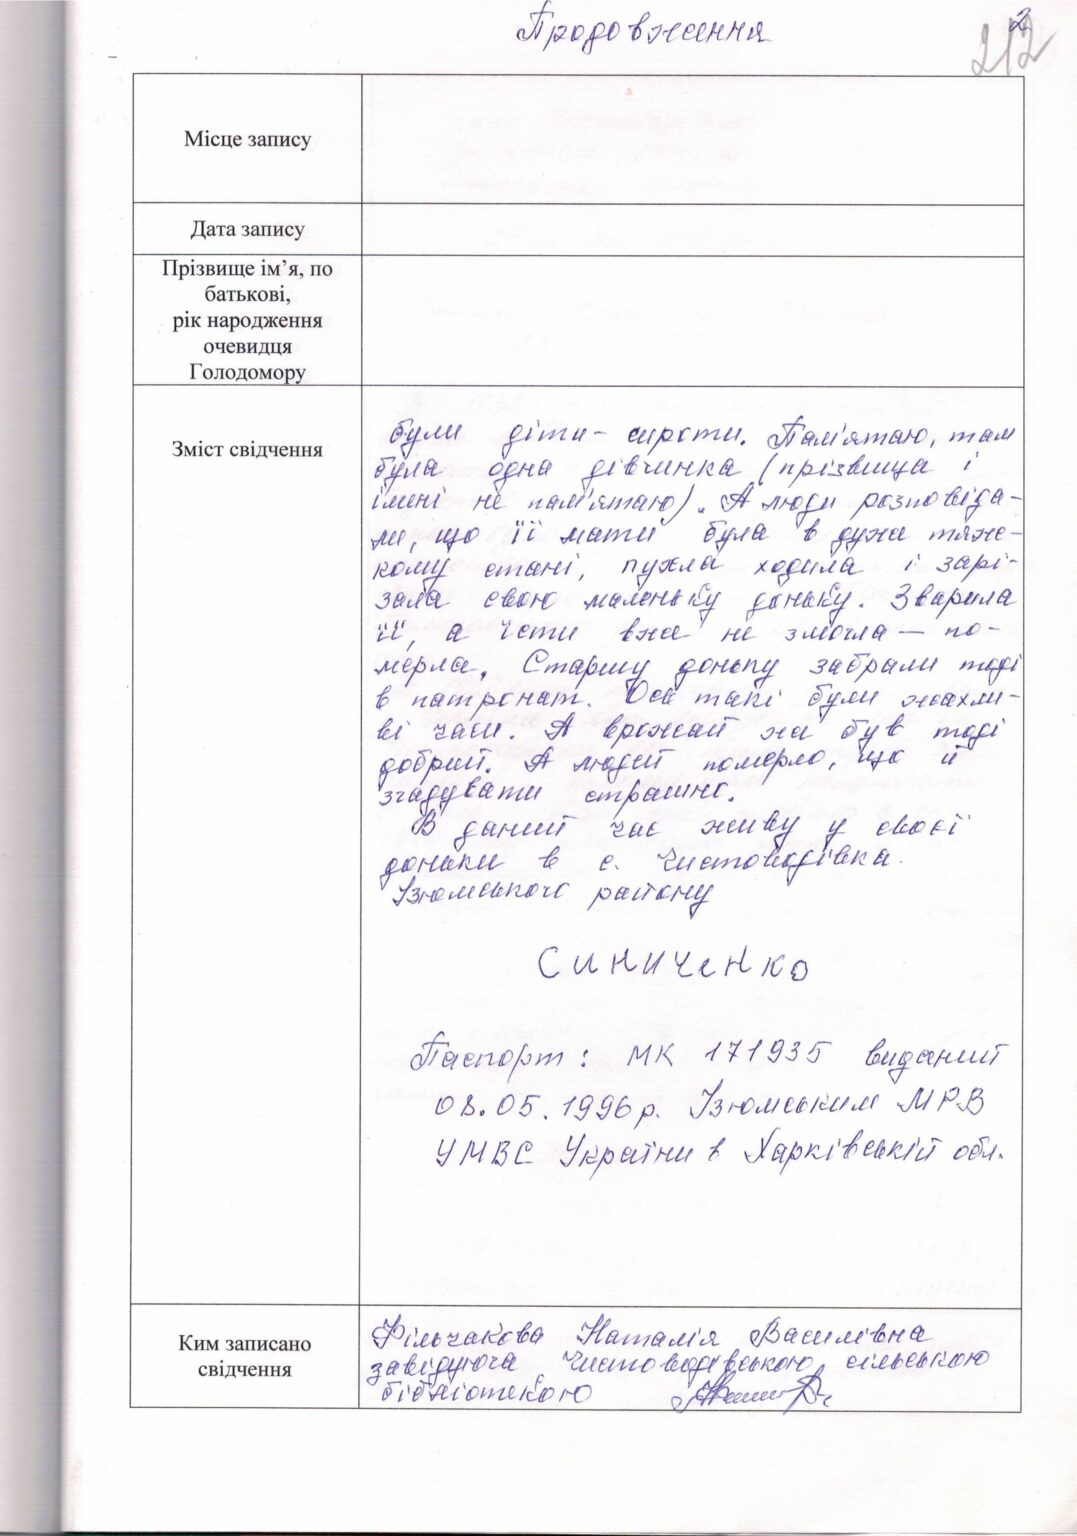 Продовження
2
212
Місце запису
Дата запису
Прізвище ім’я, по
батькові,
рік народження
очевидця
Голодомору
Зміст свідчення
були діти - сироти. Пам'ятаю, там
була одна дівчинка (прізвища і
імені не пам'ятаю). А люди розповіда-
ли, що її мати була в дуже тяж-
кому стані, пухла ходила і зарі-
зала свою маленьку доньку. Зварила
її, а їсти вже не змогла — по-
мерла. Старшу доньку забрали тоді
в патронат. Ось такі були жахли-
ві часи. А врожай же був тоді
добрий. А людей померло, що й
згадувати страшно.
В даний час живу у своєї
доньки в с. Чистоводівка
Ізюмського району
Синиченко
Паспорт: МК 171935 виданий
08.05.1996р. Ізюмським МРВ
УМВС України в Харківській обл.
Ким записано
свідчення
Фільчакова Наталія Василівна
завідуюча Чистоводівською сільською
бібліотекою